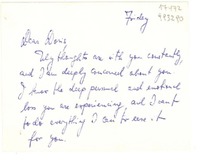 Friday
Dear Doris
My thoughts are with you constantly,
and I am deeply concerned about you
I know the deep personal and emotional
loss you are experiencing, and I want
to do everything I can to ease it
for you.